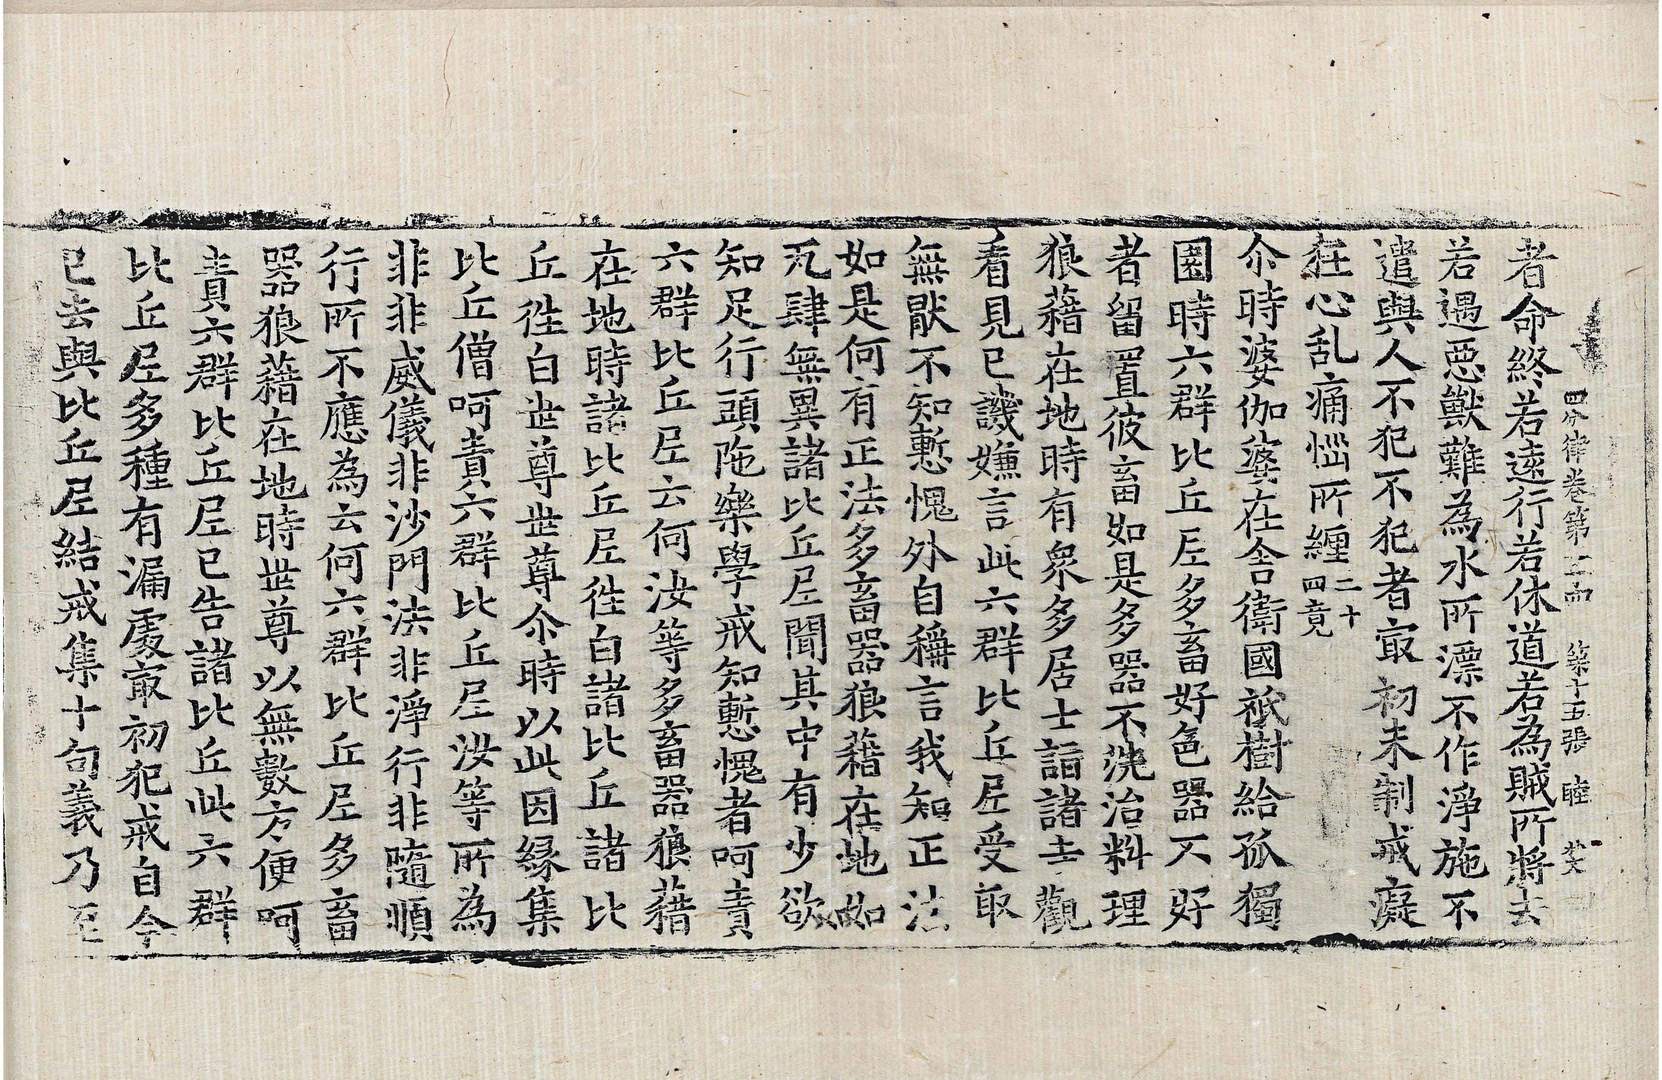 四分律卷第二 第十五張 睦
者命終若遠行若休道若為賊所將去
若遇惡獸難為水所漂不作淨施不
遣與人不犯不犯者㝡初未制戒癡
狂心乱痛惱所纏二十四竟
尒時婆伽婆在舍衛國祇樹給孤獨
園時六群比丘尼多畜好色器不好
者留置彼畜如是多器不洗治料理
狼藉在地時有眾多居士詣諸寺觀
看見已譏嫌言此六群比丘尼受取
無猒不知慙愧外自稱言我知正法
如是何有正法多畜器狼藉在地如
瓦肆無異諸比丘尼聞其中有少欲
知足行頭陁樂學戒知慙愧者呵責
六群比丘尼云何汝等多畜器狼藉
在地時諸比丘尼徃白諸比丘諸比
丘徃白世尊世尊尒時以此因緣集
比丘僧呵責六群比丘尼汝等所為
非非威儀非沙門法非淨行非隨順
行所不應為云何六群比丘尼多畜
器狼藉在地時世尊以無數方便呵
責六群比丘尼已告諸比丘此六群
比丘尼多種有漏處㝡初犯戒自今
已去與比丘尼結戒集十句義乃至